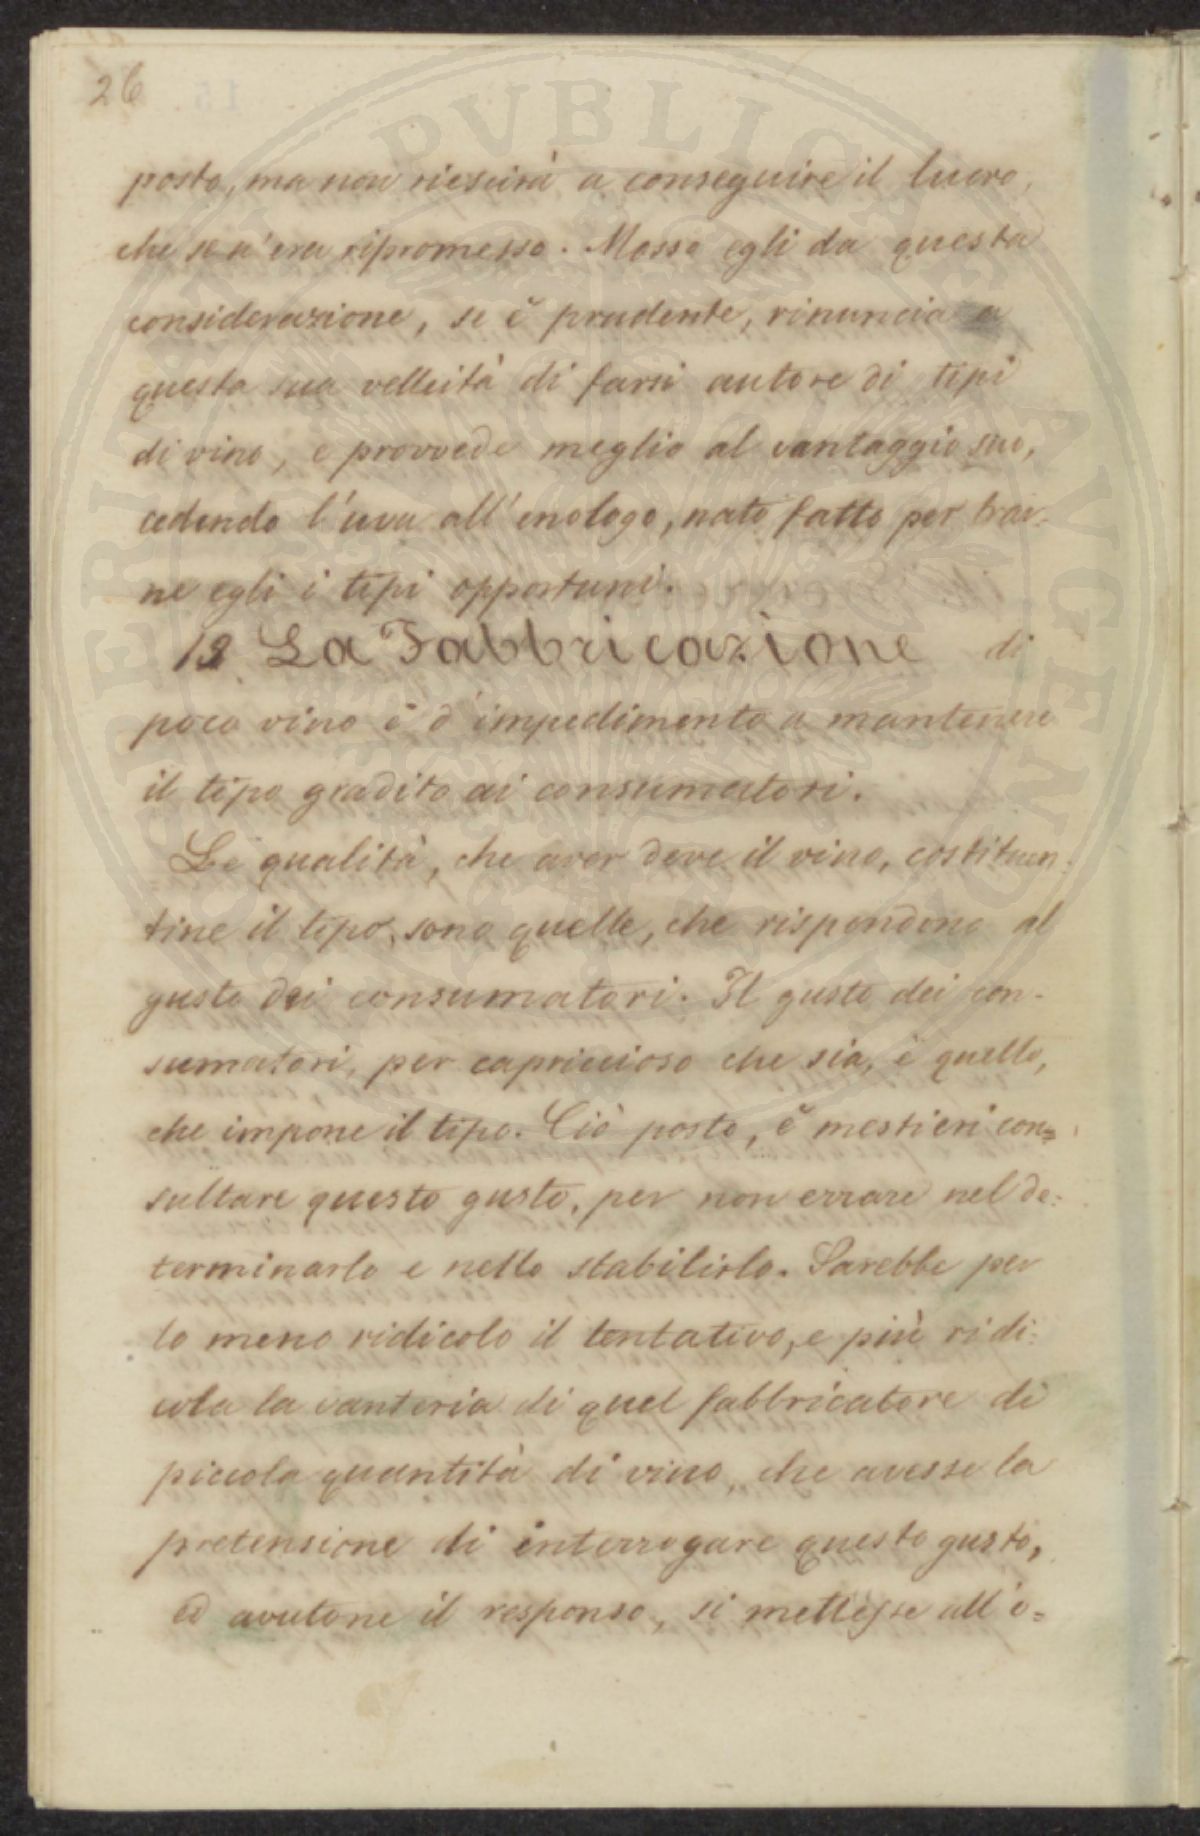 26
posto, ma non riescirà a conseguire il lucro,
che se n'era ripromesso. Mosso egli da questa
considerazione, se è prudente, rinuncia a
questa sua velleità di farsi autore di tipi
di vino, e provvede meglio al vantaggio suo,
cedendo l'uva all'enologo, nato fatto per trar-
ne egli i tipi opportuni.
12. La Fabbricazione di
poco vino è d'impedimento a mantenere
il tipo gradito ai consumatori.
Le qualità, che aver deve il vino, costituen-
tine il tipo, sono quelle, che rispondono al
gusto dei consumatori. Il gusto dei con-
sumatori, per capriccioso che sia, è quello,
che impone il tipo. Ciò posto, è mestieri con=
sultare questo gusto, per non errare nel de-
terminarlo e nello stabilirlo. Sarebbe per
lo meno ridicolo il tentativo, e più ridi-
cola la vanteria di quel fabbricatore di
piccola quantità di vino, che avesse la
pretensione di interrogare questo gusto,
ed avutone il responso, si mettesse all'o=
PVBLICAE AVGENDAE